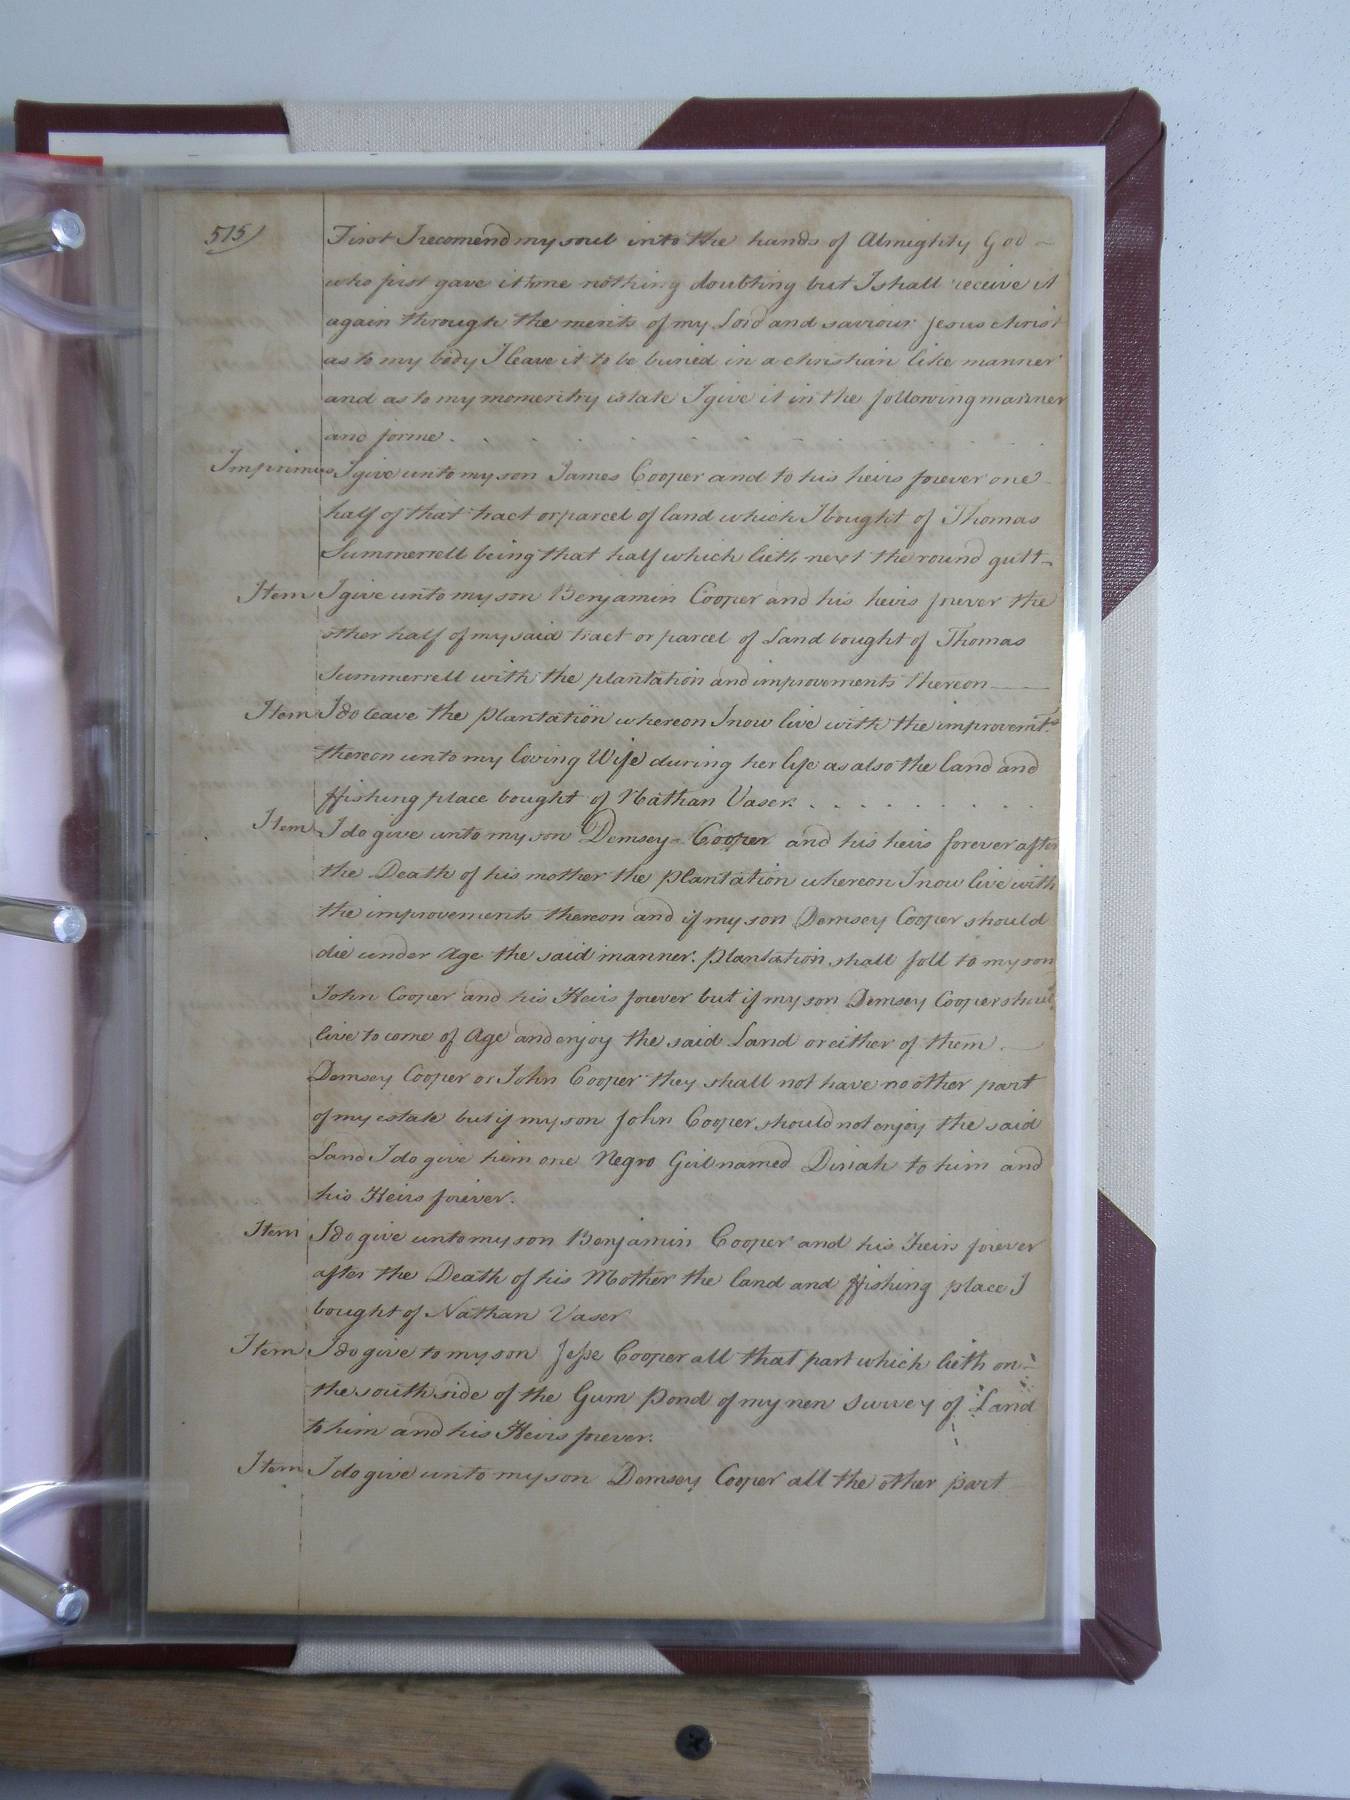 515/
First I recomend my soul into the hands of Almighty God
who first gave it to me nothing doubting but I shall receive it
again through the merits of my Lord and saviour Jesus christ
as to my body I leave it to be buried in a christian like manner
and as to my momentry estate I give it in the following manner
and forme.
Imprimus I give unto my son James Cooper and to his heirs forever one
half of that tract or parcel of land which I bought of Thomas
Summerrell being that half which lieth next the round gutt
Item I give unto my son Benjamin Cooper and his heirs forever the
other half of my said tract or parcel of Land bought of Thomas
Summerrell with the plantation and improvements thereon
Item I do leave the Plantation whereon I now live with the improvemts.
thereon unto my loving Wife during her life as also the land and
ffishing place bought of Nathan Vaser.
Item I do give unto my son Demsey Cooper and his heirs forever after
the Death of his mother the plantation whereon I now live with
the improvements thereon and if my son Demsey Cooper should
die under Age the said manner. plantation shall foll to my son
John Cooper and his Heirs forever but if my son Demsey Cooper should
live to come of Age and enjoy the said Land or either of them
Demsey Cooper or John Cooper they shall not have no other part
of my estate but if my son John Cooper should not enjoy the said
Land I do give him one Negro Girl named Diniah to him and
his Heirs forever.
Item I do give unto my son Benjamin Cooper and his Heirs forever
after the Death of his Mother the land and ffishing place I
bought of Nathan Vaser
Item I do give to my son Jesse Cooper all that part which lieth on
the south side of the Gum Pond of my nen Survey of Land
to him and his Heirs forever.
Item I do give unto my son Demsey Cooper all the other part